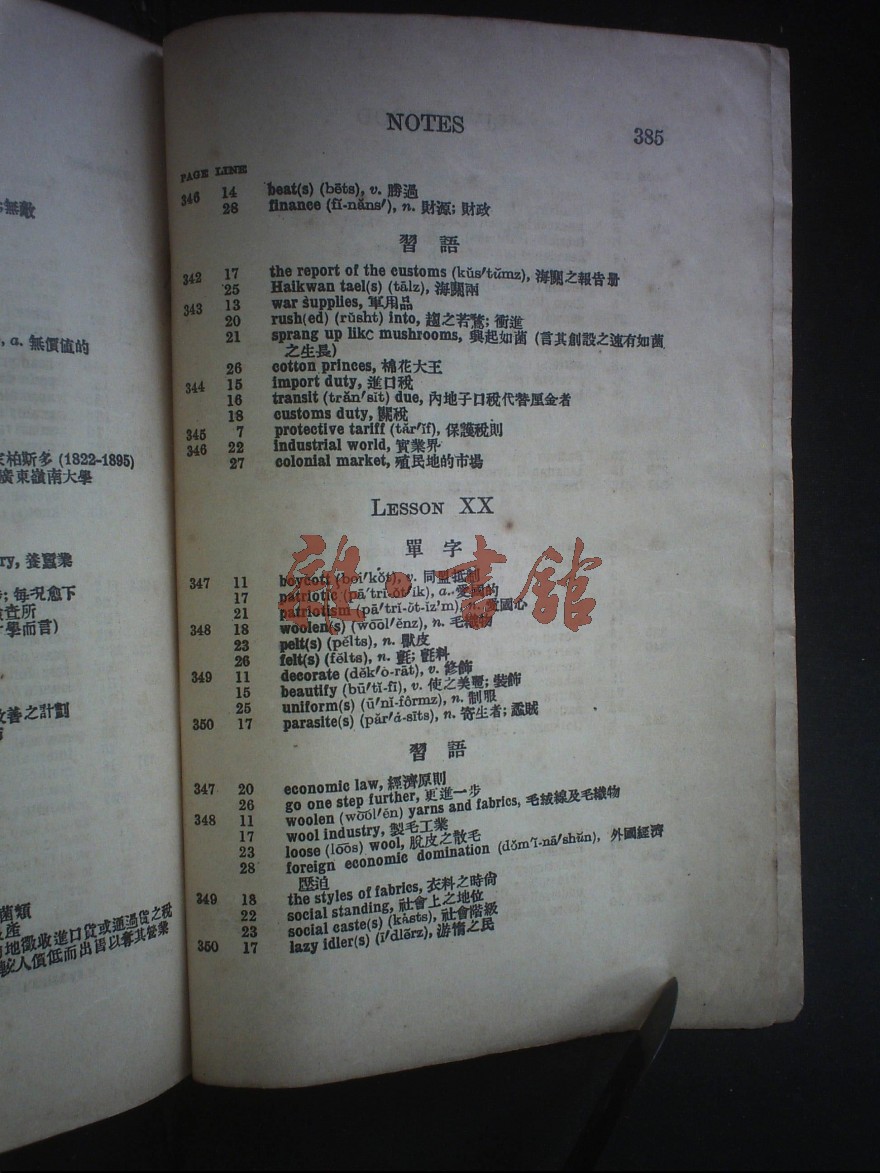 無敵
a. 無價値的
柏斯多 (1822-1895)
廣東嶺南大學
ry, 養蠶業
每況愈下
檢查所
學而言)
改善之計劃
菌類
產
地徵收進口貨或通過貨之稅
人價低而出售以奪其營業
NOTES
385
PAGE LINE
346 14 beat(s) (bēts), v. 勝過
28 finance (fĭ-năns′), n. 財源; 財政
習語
342 17 the report of the customs (kŭs′tŭmz), 海關之報告册
25 Haikwan tael(s) (tālz), 海關兩
343 13 war supplies, 軍用品
20 rush(ed) (rŭsht) into, 趨之若鶩; 衝進
21 sprang up like mushrooms, 興起如菌 (言其創設之速有如菌
之生長)
26 cotton princes, 棉花大王
344 15 import duty, 進口稅
16 transit (trăn′sĭt) due, 內地子口稅代替厘金者
18 customs duty, 關稅
345 7 protective tariff (tăr′ĭf), 保護稅則
346 22 industrial world, 實業界
27 colonial market, 殖民地的市場
LESSON XX
單字
347 11 boycott (boi′kŏt), v. 同盟抵制
17 patriotic (pā′trĭ-ŏt′ĭk), a. 愛國的
21 patriotism (pā′trĭ-ŏt-ĭz′m), n. 愛國心
348 18 woolen(s) (wŏŏl′ĕnz), n. 毛織物
23 pelt(s) (pĕlts), n. 獸皮
26 felt(s) (fĕlts), n. 氈; 氈料
349 11 decorate (dĕk′ō-rāt), v. 修飾
15 beautify (bū′tĭ-fī), v. 使之美麗; 裝飾
25 uniform(s) (ū′nĭ-fôrmz), n. 制服
350 17 parasite(s) (păr′á-sīts), n. 寄生者; 蟊賊
習語
347 20 economic law, 經濟原則
26 go one step further, 更進一步
348 11 woolen (wŏŏl′ĕn) yarns and fabrics, 毛絨線及毛織物
17 wool industry, 製毛工業
23 loose (lōōs) wool, 脫皮之散毛
28 foreign economic domination (dŏm′ĭ-nā′shŭn), 外國經濟
壓迫
349 18 the styles of fabrics, 衣料之時尙
22 social standing, 社會上之地位
23 social caste(s) (kȧsts), 社會階級
350 17 lazy idler(s) (ī′dlẽrz), 游惰之民